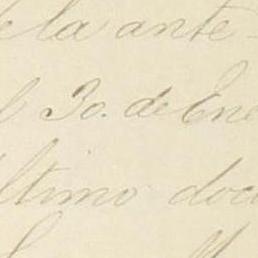 de la ante-
l 30. de Ene
último doc